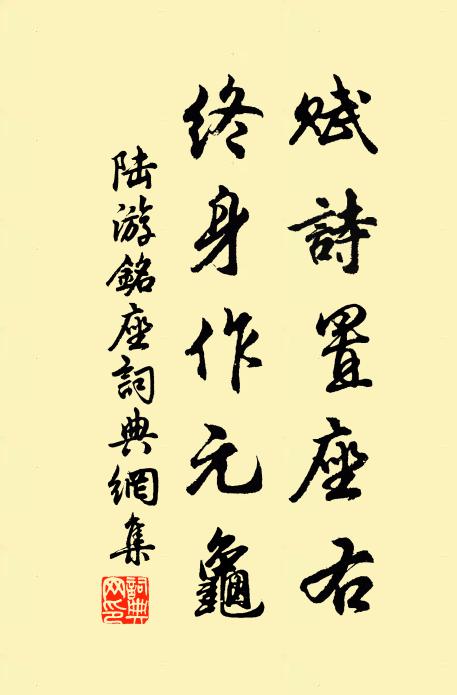 賦詩置座右
終身作元龜
陸游銘座詞典網集
詞典网印